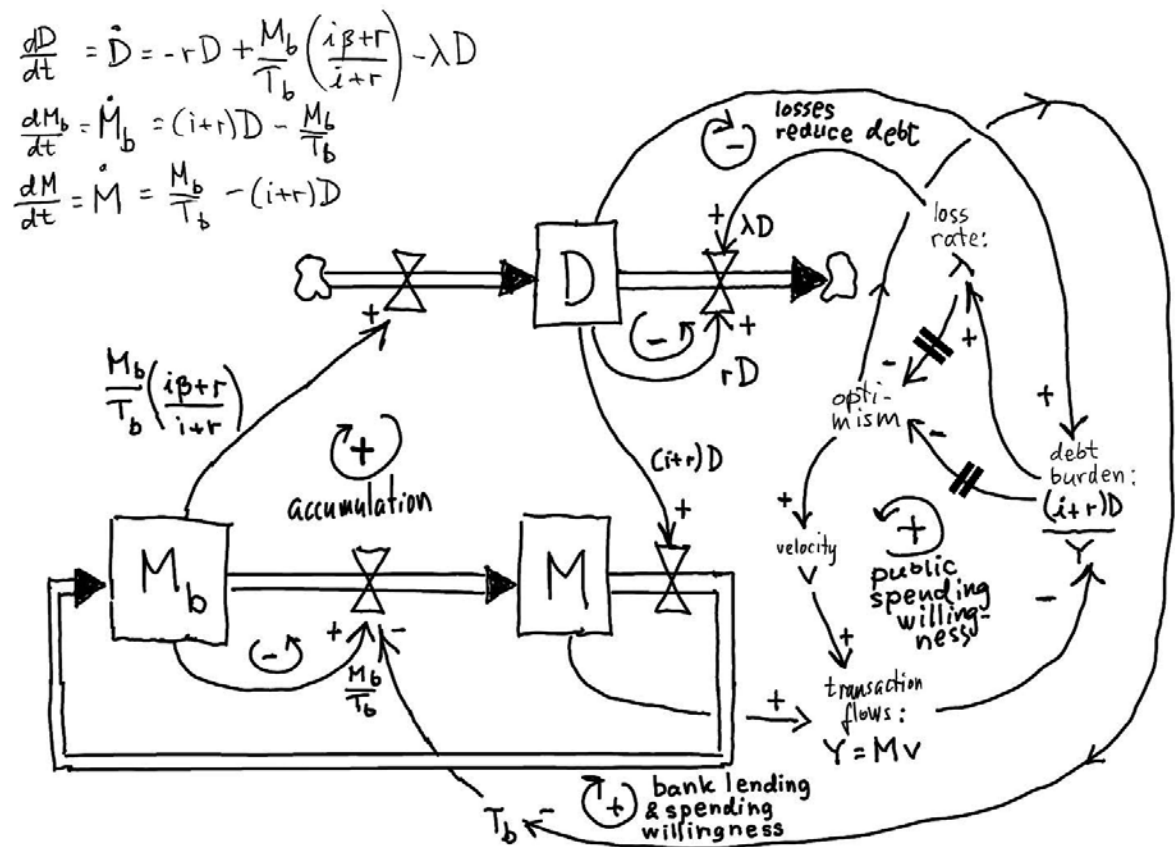 dD/dt = Ḋ = -rD + M_b/T_b (iβ+r / i+r) - λD
dM_b/dt = Ṁ_b = (i+r)D - M_b/T_b
dM/dt = Ṁ = M_b/T_b - (i+r)D
losses
reduce debt
-
+ λD
loss
rate:
λ
D
+
-
+
rD
-
+
M_b/T_b (iβ+r / i+r)
opti-
mism
-
+
debt
burden:
(i+r)D
Y
+
accumulation
(i+r)D
+
+
velocity
v
+
public
spending
willing-
ness
-
M_b
M
-
+
-
M_b/T_b
+
+
transaction
flows:
Y=Mv
T_b
-
+
bank lending
& spending
willingness